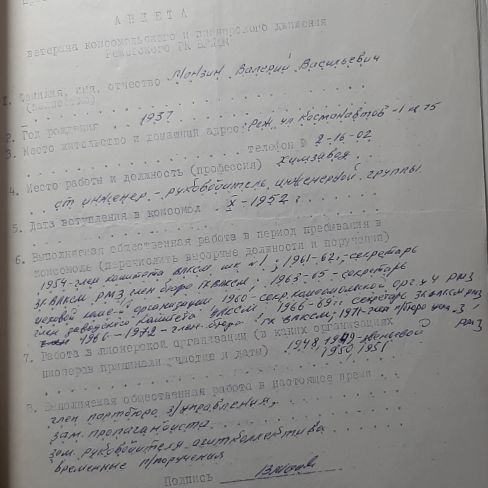 АНКЕТА
ветерана комсомольского и пионерского движения
Режевского ГК ВЛКСМ
1. Фамилия, имя, отчество Мокзин Валерий Васильевич
(полностью)
2. Год рождения 1937
3. Место жительство и домашний адрес: Реж, ул Космонавтов-1 кв 75
телефон 2-16-02
4. Место работы и должность (профессия) Химзавод
ст инженер - руководитель инженерной группы
5. Дата вступления в комсомол X-1952 г
6. Выполняемая общественная работа в период пребывания в
комсомоле (перечислить выборные должности и поручения)
1954-член комитета ВЛКСМ шк №1; 1961-62г. секретарь
ЗК ВЛКСМ РМЗ, член бюро ГК ВЛКСМ; 1963-65-секретарь
цеховой комс-й организации 1960-секр. комсомольской орг ц 4 РМЗ
член заводского комитета ВЛКСМ; 1966-69г. секретарь ЗК ВЛКСМ РМЗ
1966-1972-член бюро ГК ВЛКСМ; 1971-член п/бюро
7. Работа в пионерской организации (в каких организациях РМЗ
пионеров принимали участие и даты) 1948, 1949-звеньевой
1950, 1951
8. Выполняемая общественная работа в настоящее время
член партбюро з/управления,
зам. пропагандиста
зам. руководителя агитколлектива
временные п/поручения
Подпись